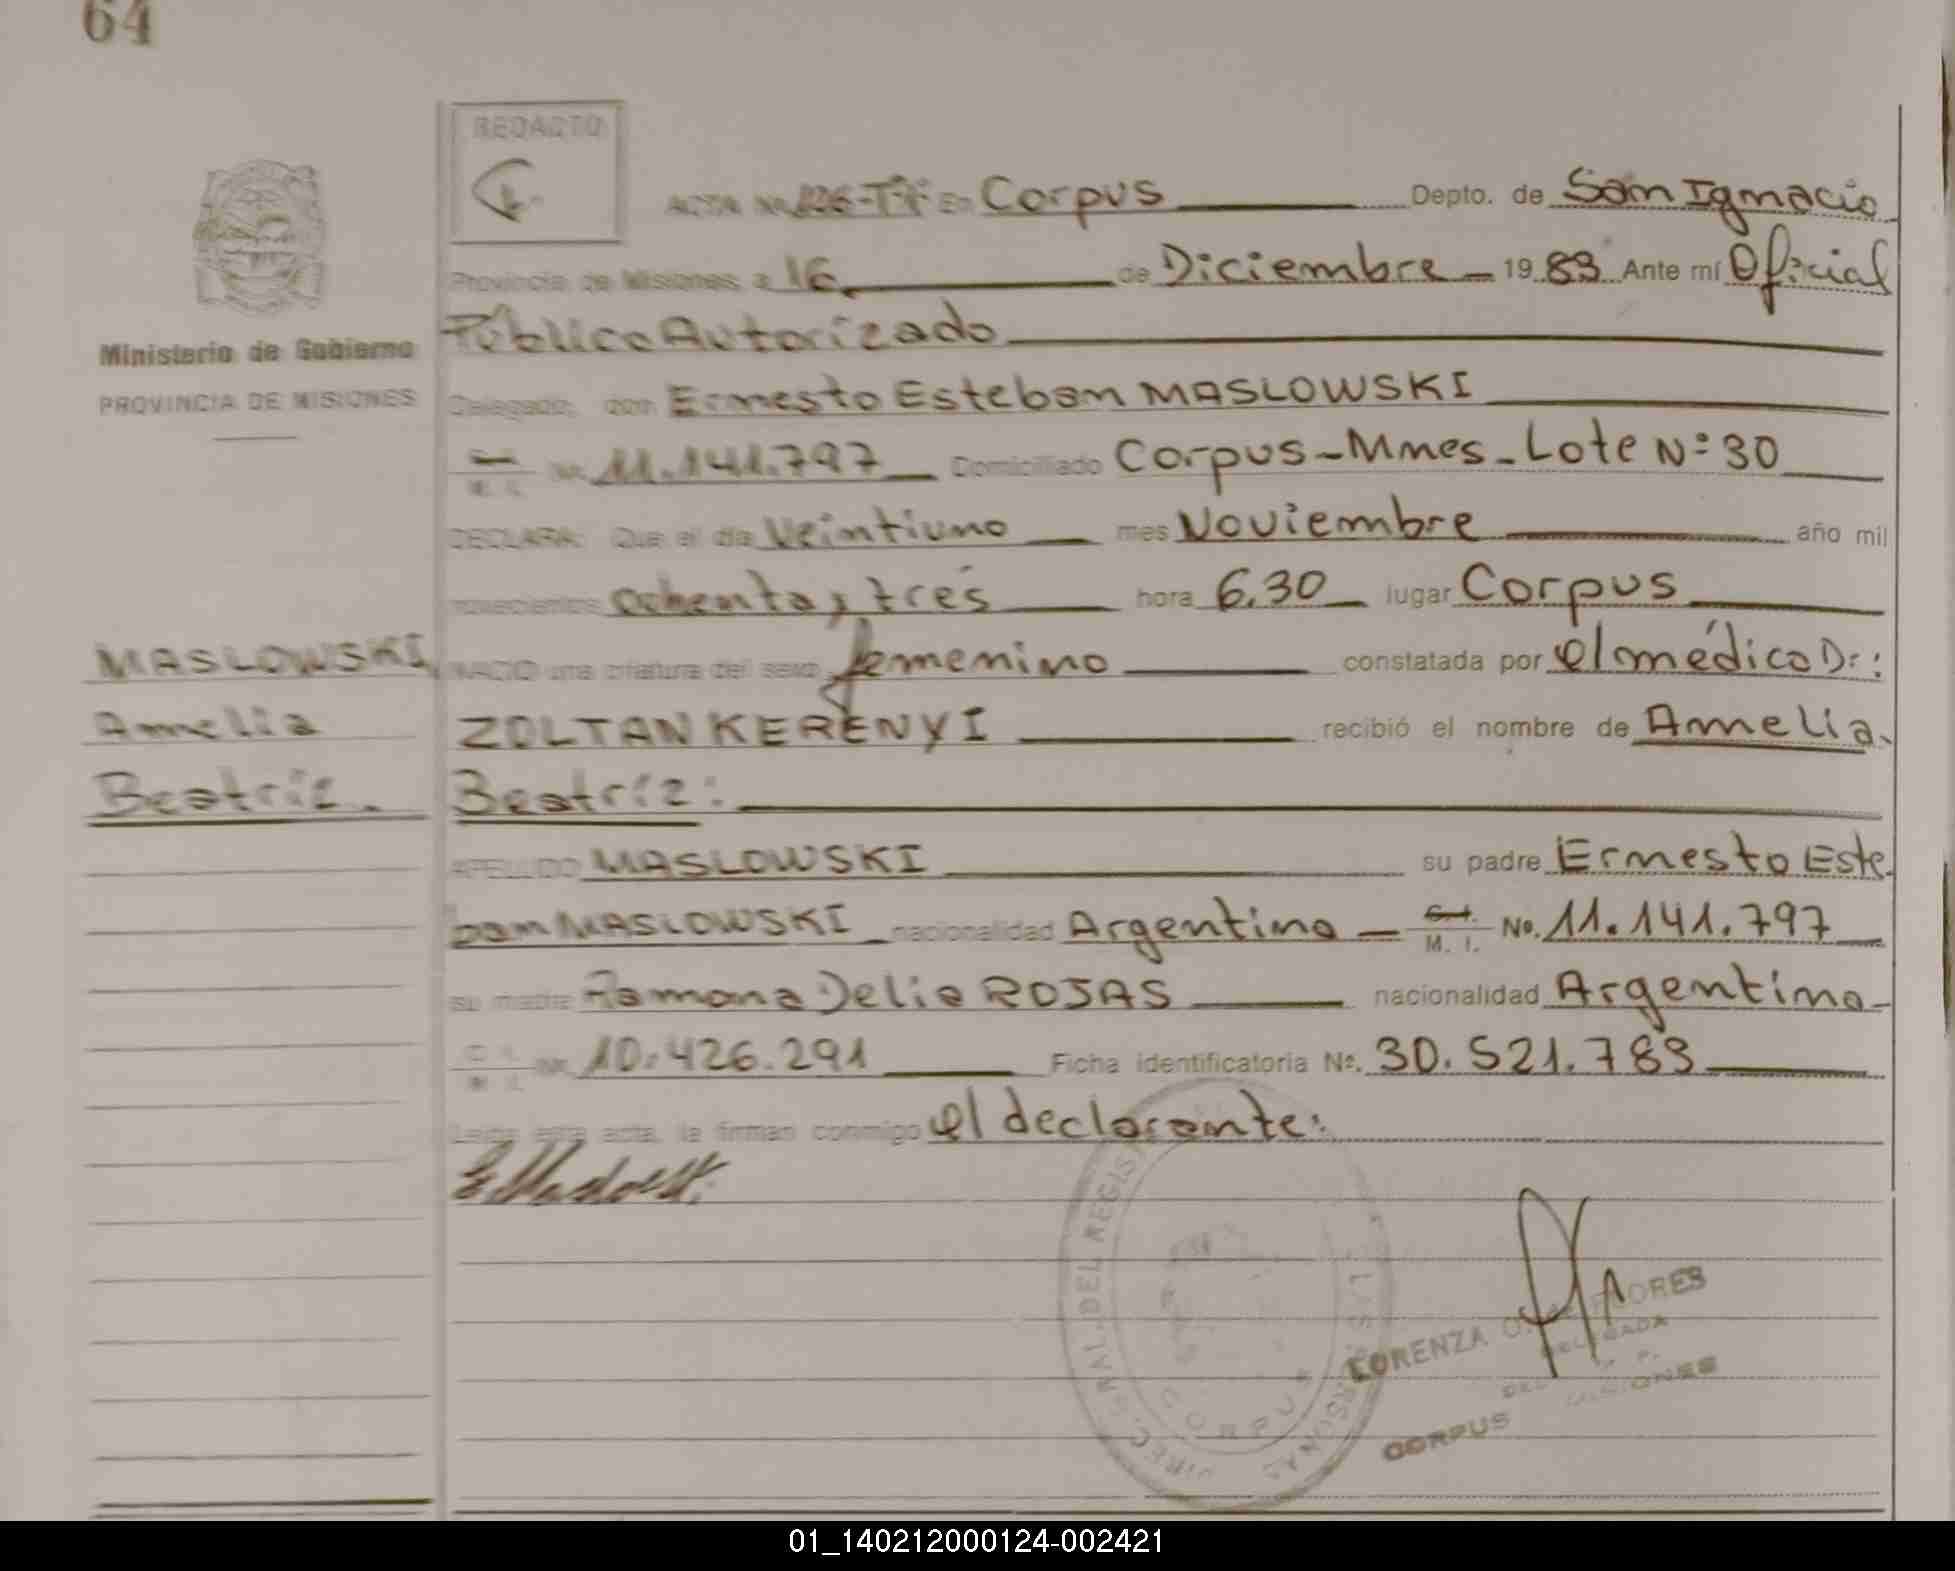 64
REDACTO
ACTA No. 126-Tº1º En Corpus Depto. de San Ignacio
Provincia de Misiones a 16 de Diciembre 1983 Ante mí Oficial
Público Autorizado
Ministerio de Gobierno
PROVINCIA DE MISIONES
Delegado, don Ernesto Esteban MASLOWSKI
M. I. No. 11.141.797 Domiciliado Corpus-Mnes-Lote Nº 30
DECLARA: Que el día Veintiuno mes Noviembre año mil
novecientos ochenta y tres hora 6.30 lugar Corpus
MASLOWSKI,
NACIO una criatura del sexo femenino constatada por el médico Dr:
Amelia
ZOLTAN KERENYI recibió el nombre de Amelia
Beatriz.
Beatríz:
APELLIDO MASLOWSKI su padre Ernesto Este
ban MASLOWSKI nacionalidad Argentino C. I. M. I. No. 11.141.797
su madre Ramona Delia ROJAS nacionalidad Argentina
C. I. M. I. No. 10.426.291 Ficha identificatoria Nº. 30.521.783
Leída esta acta, la firman conmigo el declarante:
DIREC. GRAL. DEL REGIST PERSONAS
CORPUS
LORENZA FLORES
DELEGADA
MISIONES
CORPUS
01_140212000124-002421